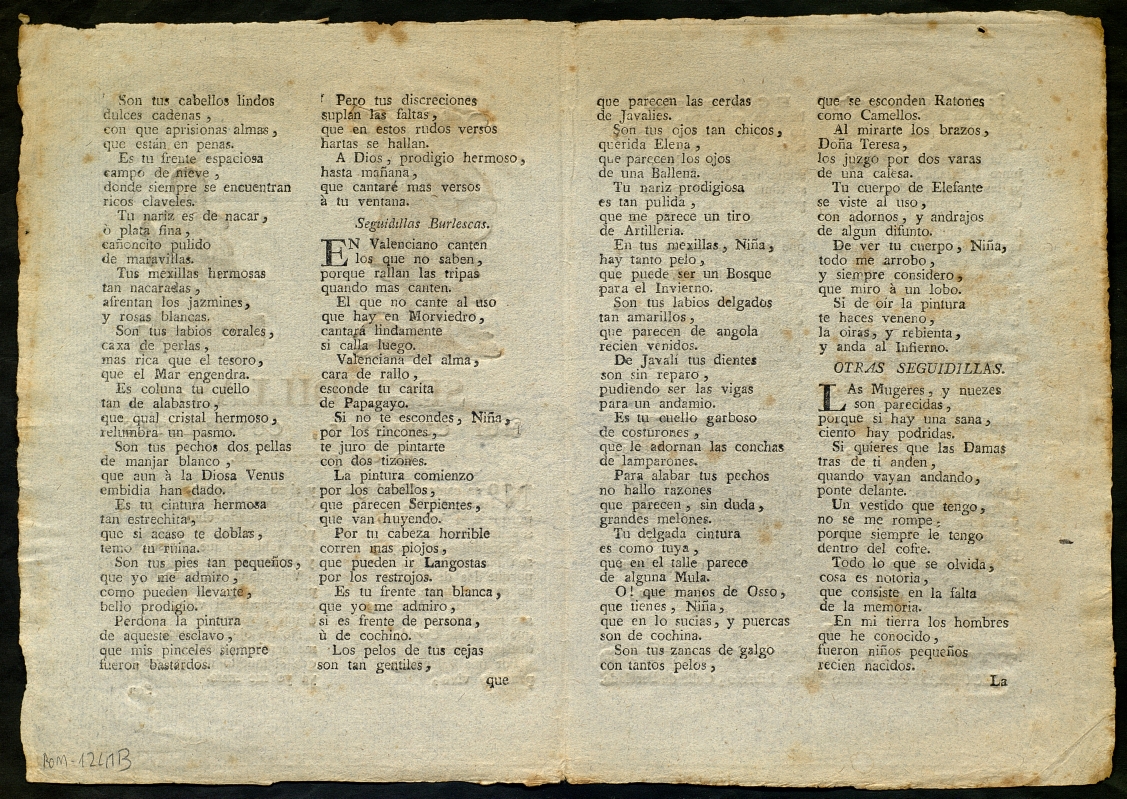 Son tus cabellos lindos
dulces cadenas,
con que aprisionas almas,
que están en penas.
Es tu frente espaciosa
campo de nieve,
donde siempre se encuentran
ricos claveles.
Tu nariz es de nacar,
ò plata fina,
cañoncito pulido
de maravillas.
Tus mexillas hermosas
tan nacaradas,
afrentan los jazmines,
y rosas blancas.
Son tus labios corales,
caxa de perlas,
mas rica que el tesoro,
que el Mar engendra.
Es coluna tu cuello
tan de alabastro,
que qual cristal hermoso,
relumbra un pasmo.
Son tus pechos dos pellas
de manjar blanco,
que aun à la Diosa Venus
embidia han dado.
Es tu cintura hermosa
tan estrechita,
que si acaso te doblas,
temo tu ruina.
Son tus pies tan pequeños,
que yo me admiro,
como pueden llevarte,
bello prodigio.
Perdona la pintura
de aqueste esclavo,
que mis pinceles siempre
fueron bastardos.
Pero tus discreciones
suplan las faltas,
que en estos rudos versos
hartas se hallan.
A Dios, prodigio hermoso,
hasta mañana,
que cantaré mas versos
à tu ventana.
Seguidillas Burlescas.
EN Valenciano canten
los que no saben,
porque rallan las tripas
quando mas canten.
El que no cante al uso
que hay en Morviedro,
cantará lindamente
si calla luego.
Valenciana del alma,
cara de rallo,
esconde tu carita
de Papagayo.
Si no te escondes, Niña,
por los rincones,
te juro de pintarte
con dos tizones.
La pintura comienzo
por los cabellos,
que parecen Serpientes,
que van huyendo.
Por tu cabeza horrible
corren mas piojos,
que pueden ir Langostas
por los restrojos.
Es tu frente tan blanca,
que yo me admiro,
si es frente de persona,
ù de cochino.
Los pelos de tus cejas
son tan gentiles,
que
que parecen las cerdas
de Javalíes.
Son tus ojos tan chicos,
querida Elena,
que parecen los ojos
de una Ballena.
Tu nariz prodigiosa
es tan pulida,
que me parece un tiro
de Artillería.
En tus mexillas, Niña,
hay tanto pelo,
que puede ser un Bosque
para el Invierno.
Son tus labios delgados
tan amarillos,
que parecen de angola
recien venidos.
De Javalí tus dientes
son sin reparo,
pudiendo ser las vigas
para un andamio.
Es tu cuello garboso
de costurones,
que le adornan las conchas
de lamparones.
Para alabar tus pechos
no hallo razones
que parecen, sin duda,
grandes melones.
Tu delgada cintura
es como tuya,
que en el talle parece
de alguna Mula.
O! que manos de Osso,
que tienes, Niña,
que en lo sucias, y puercas
son de cochina.
Son tus zancas de galgo
con tantos pelos,
que se esconden Ratones
como Camellos.
Al mirarte los brazos,
Doña Teresa,
los juzgo por dos varas
de una calesa.
Tu cuerpo de Elefante
se viste al uso,
con adornos, y andrajos
de algun difunto.
De ver tu cuerpo, Niña,
todo me arrobo,
y siempre considero,
que miro à un lobo.
Si de oir la pintura
te haces veneno,
la oiras, y rebienta,
y anda al Infierno.
OTRAS SEGUIDILLAS.
LAs Mugeres, y nuezes
son parecidas,
porque si hay una sana,
ciento hay podridas.
Si quieres que las Damas
tras de ti anden,
quando vayan andando,
ponte delante.
Un vestido que tengo,
no se me rompe;
porque siempre le tengo
dentro del cofre.
Todo lo que se olvida,
cosa es notoria,
que consiste en la falta
de la memoria.
En mi tierra los hombres
que he conocido,
fueron niños pequeños
recien nacidos.
La